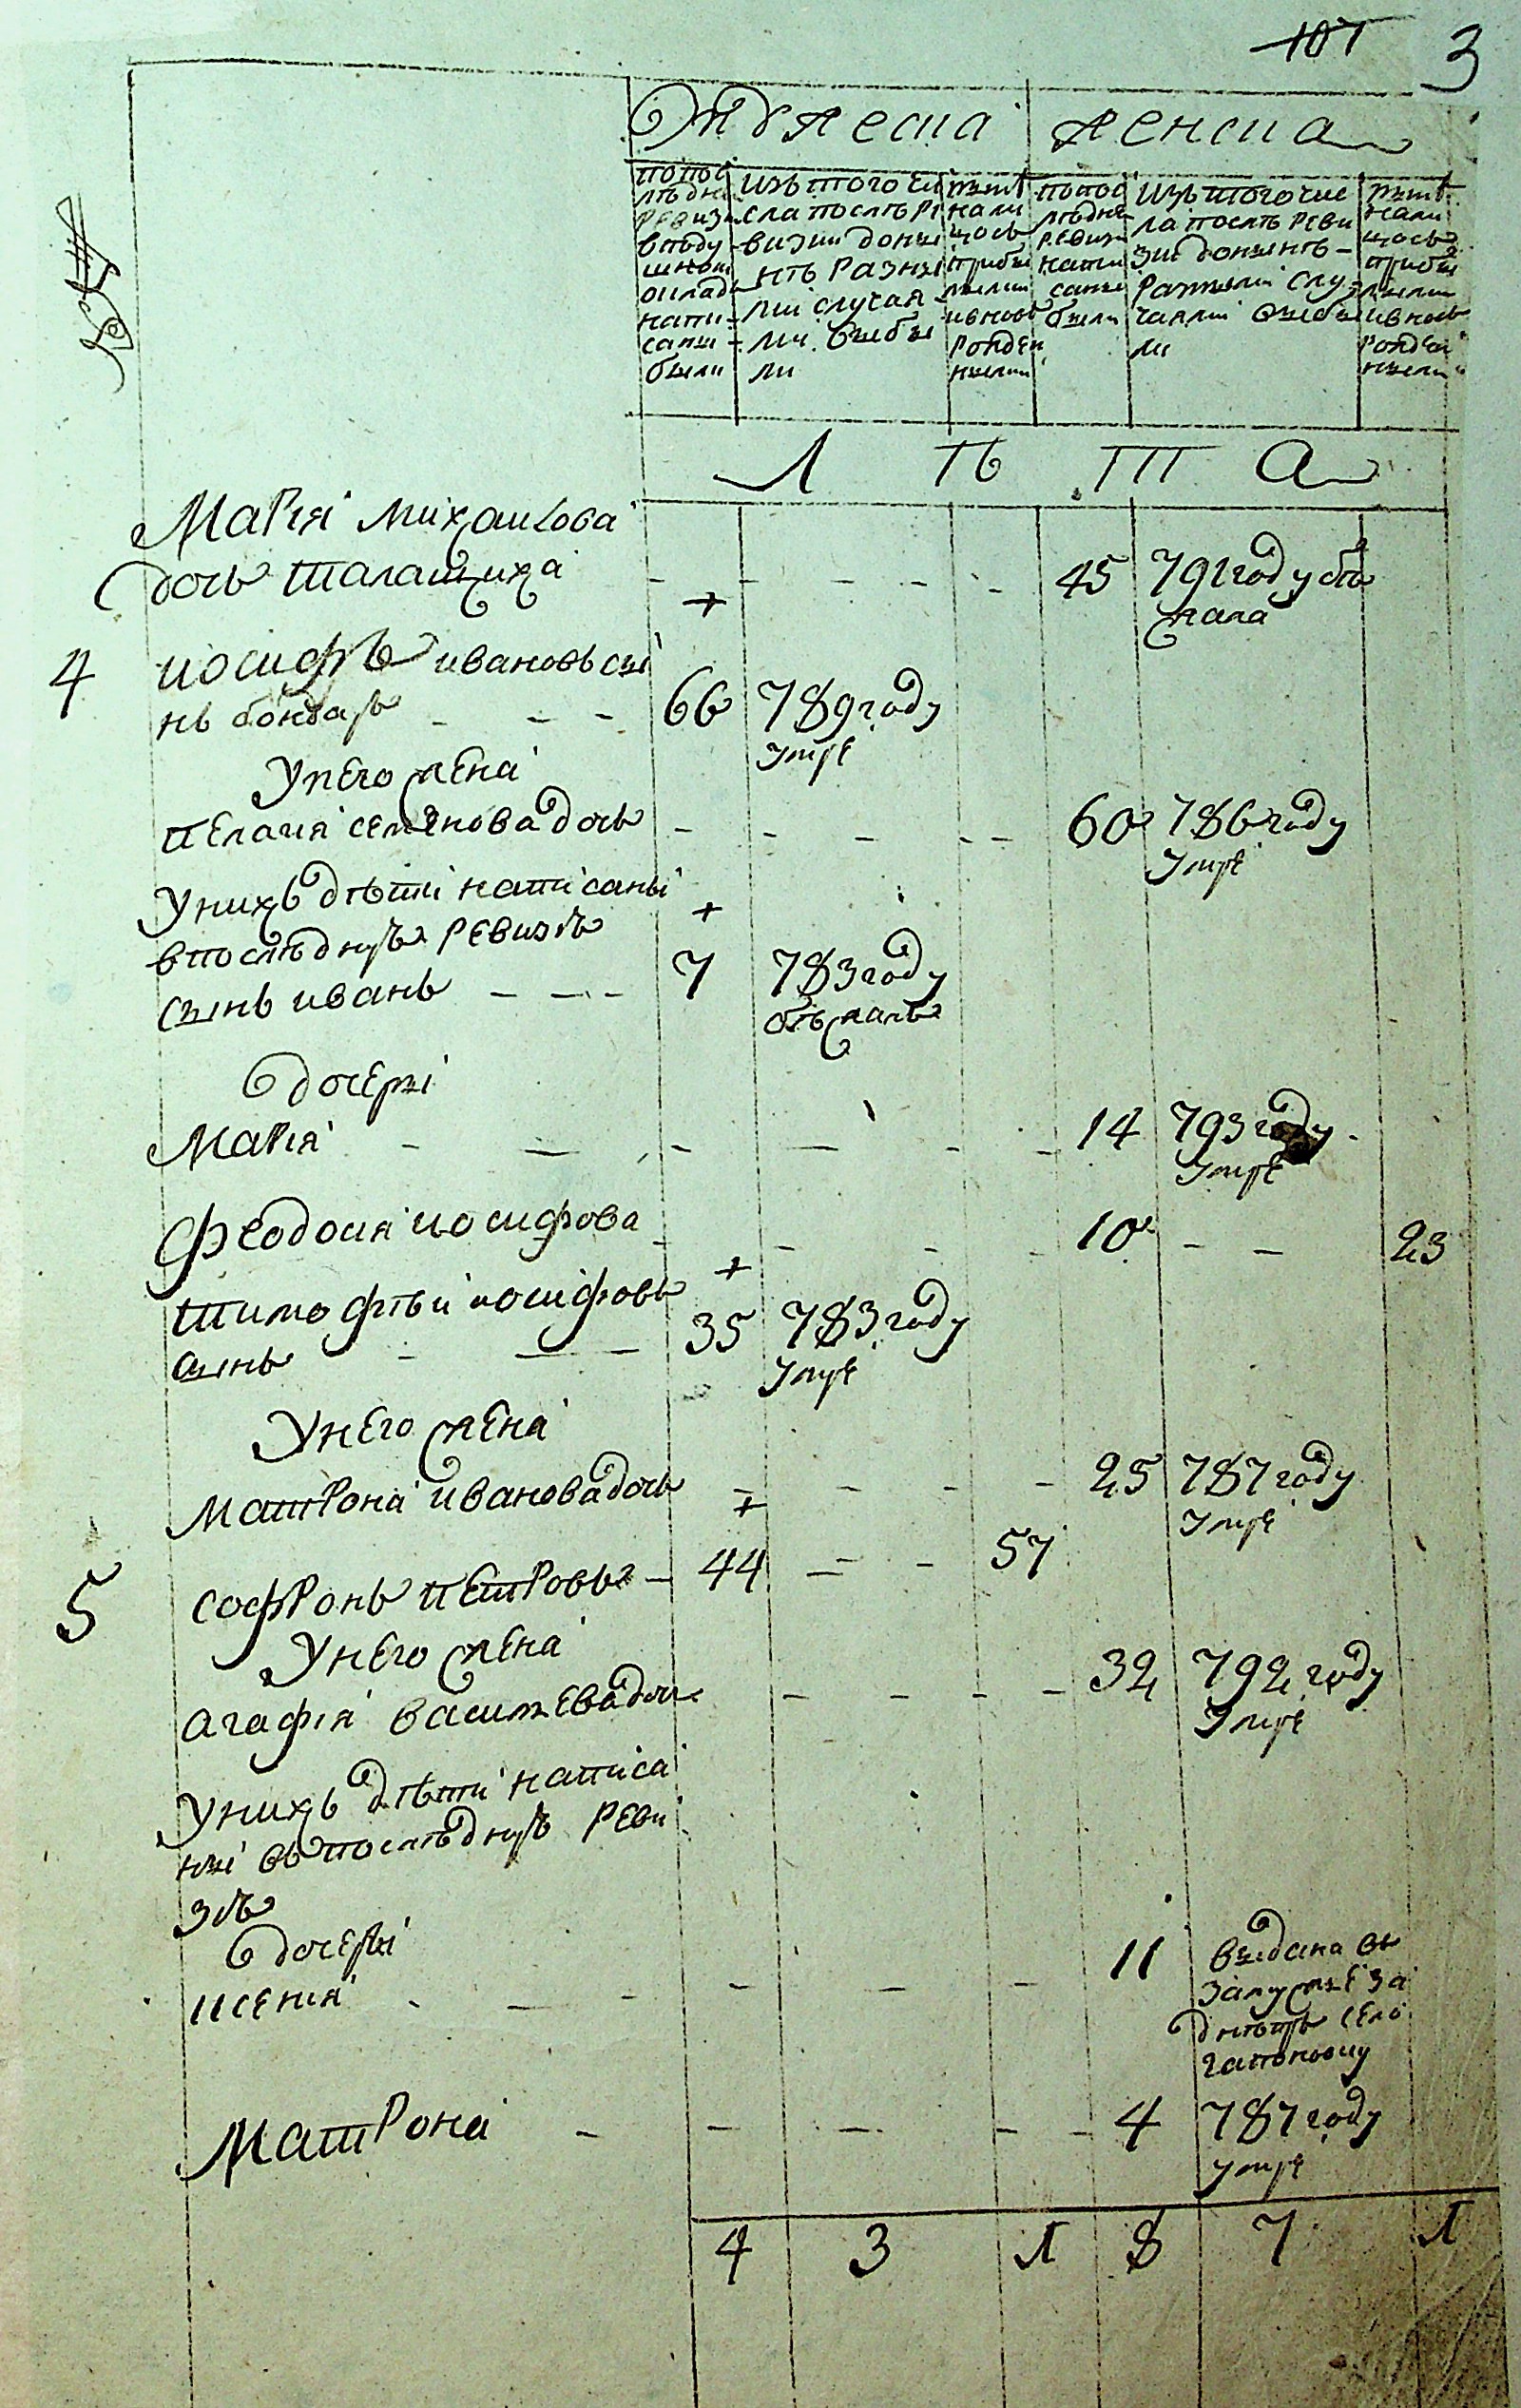 107 3
Мужеска женска
попос
лѣдне
ревизи
вподу
шном
окладе
напи
саны
были
изъ того чи
сла послѣ ре
визии доны
нѣ разны
ми случая
ми выбы
ли
ныне
нали
цось
прибы
лыми
ивновь
рожден
ными
попос
лѣдне
ревизи
напи
саны
были
изъ того чис
ла послѣ реви
зии донынѣ
разными слу
чаями выбы
ли
ныне
нали
цось
прибы
лыми
ивновь
рожден
ными
Л Ѣ Т А
Мария михаилова
дочь талащиха - - - - - 45 791 году бѣ
жала
+
4 иосифъ ивановъ сы
нъ бондарь - - - 66 789 году
умре
У него жена
пелагия семенова дочь - - - - - 60 786 году
умре
У нихъ дѣти написаны
в последнуѣ ревизiѣ +
сынъ иванъ - - - 7 783 году
бѣжалъ
дочери
Мария - - - - - - 14 793 году
умре
Феодосия иосифова - - - - 10 - - 23
тимофѣй иосифовъ +
сынъ - - - 35 783 году
умре
У него жена
Матрона ивановa дочь - - - - 25 787 году
умре
+
5 софронъ петровъ - 44 - - - 57
У него жена
агафия василева доч - - - - 32 792 году
умре
У нихъ дѣти написа
ны въ последнуѣ реви
зiѣ
дочери
ксения - - - - - - 11 выдана въ
замужье за
днѣпръ село
гапоновку
Матрона - - - - - 4 787 году
умре
4 3 1 8 7 1